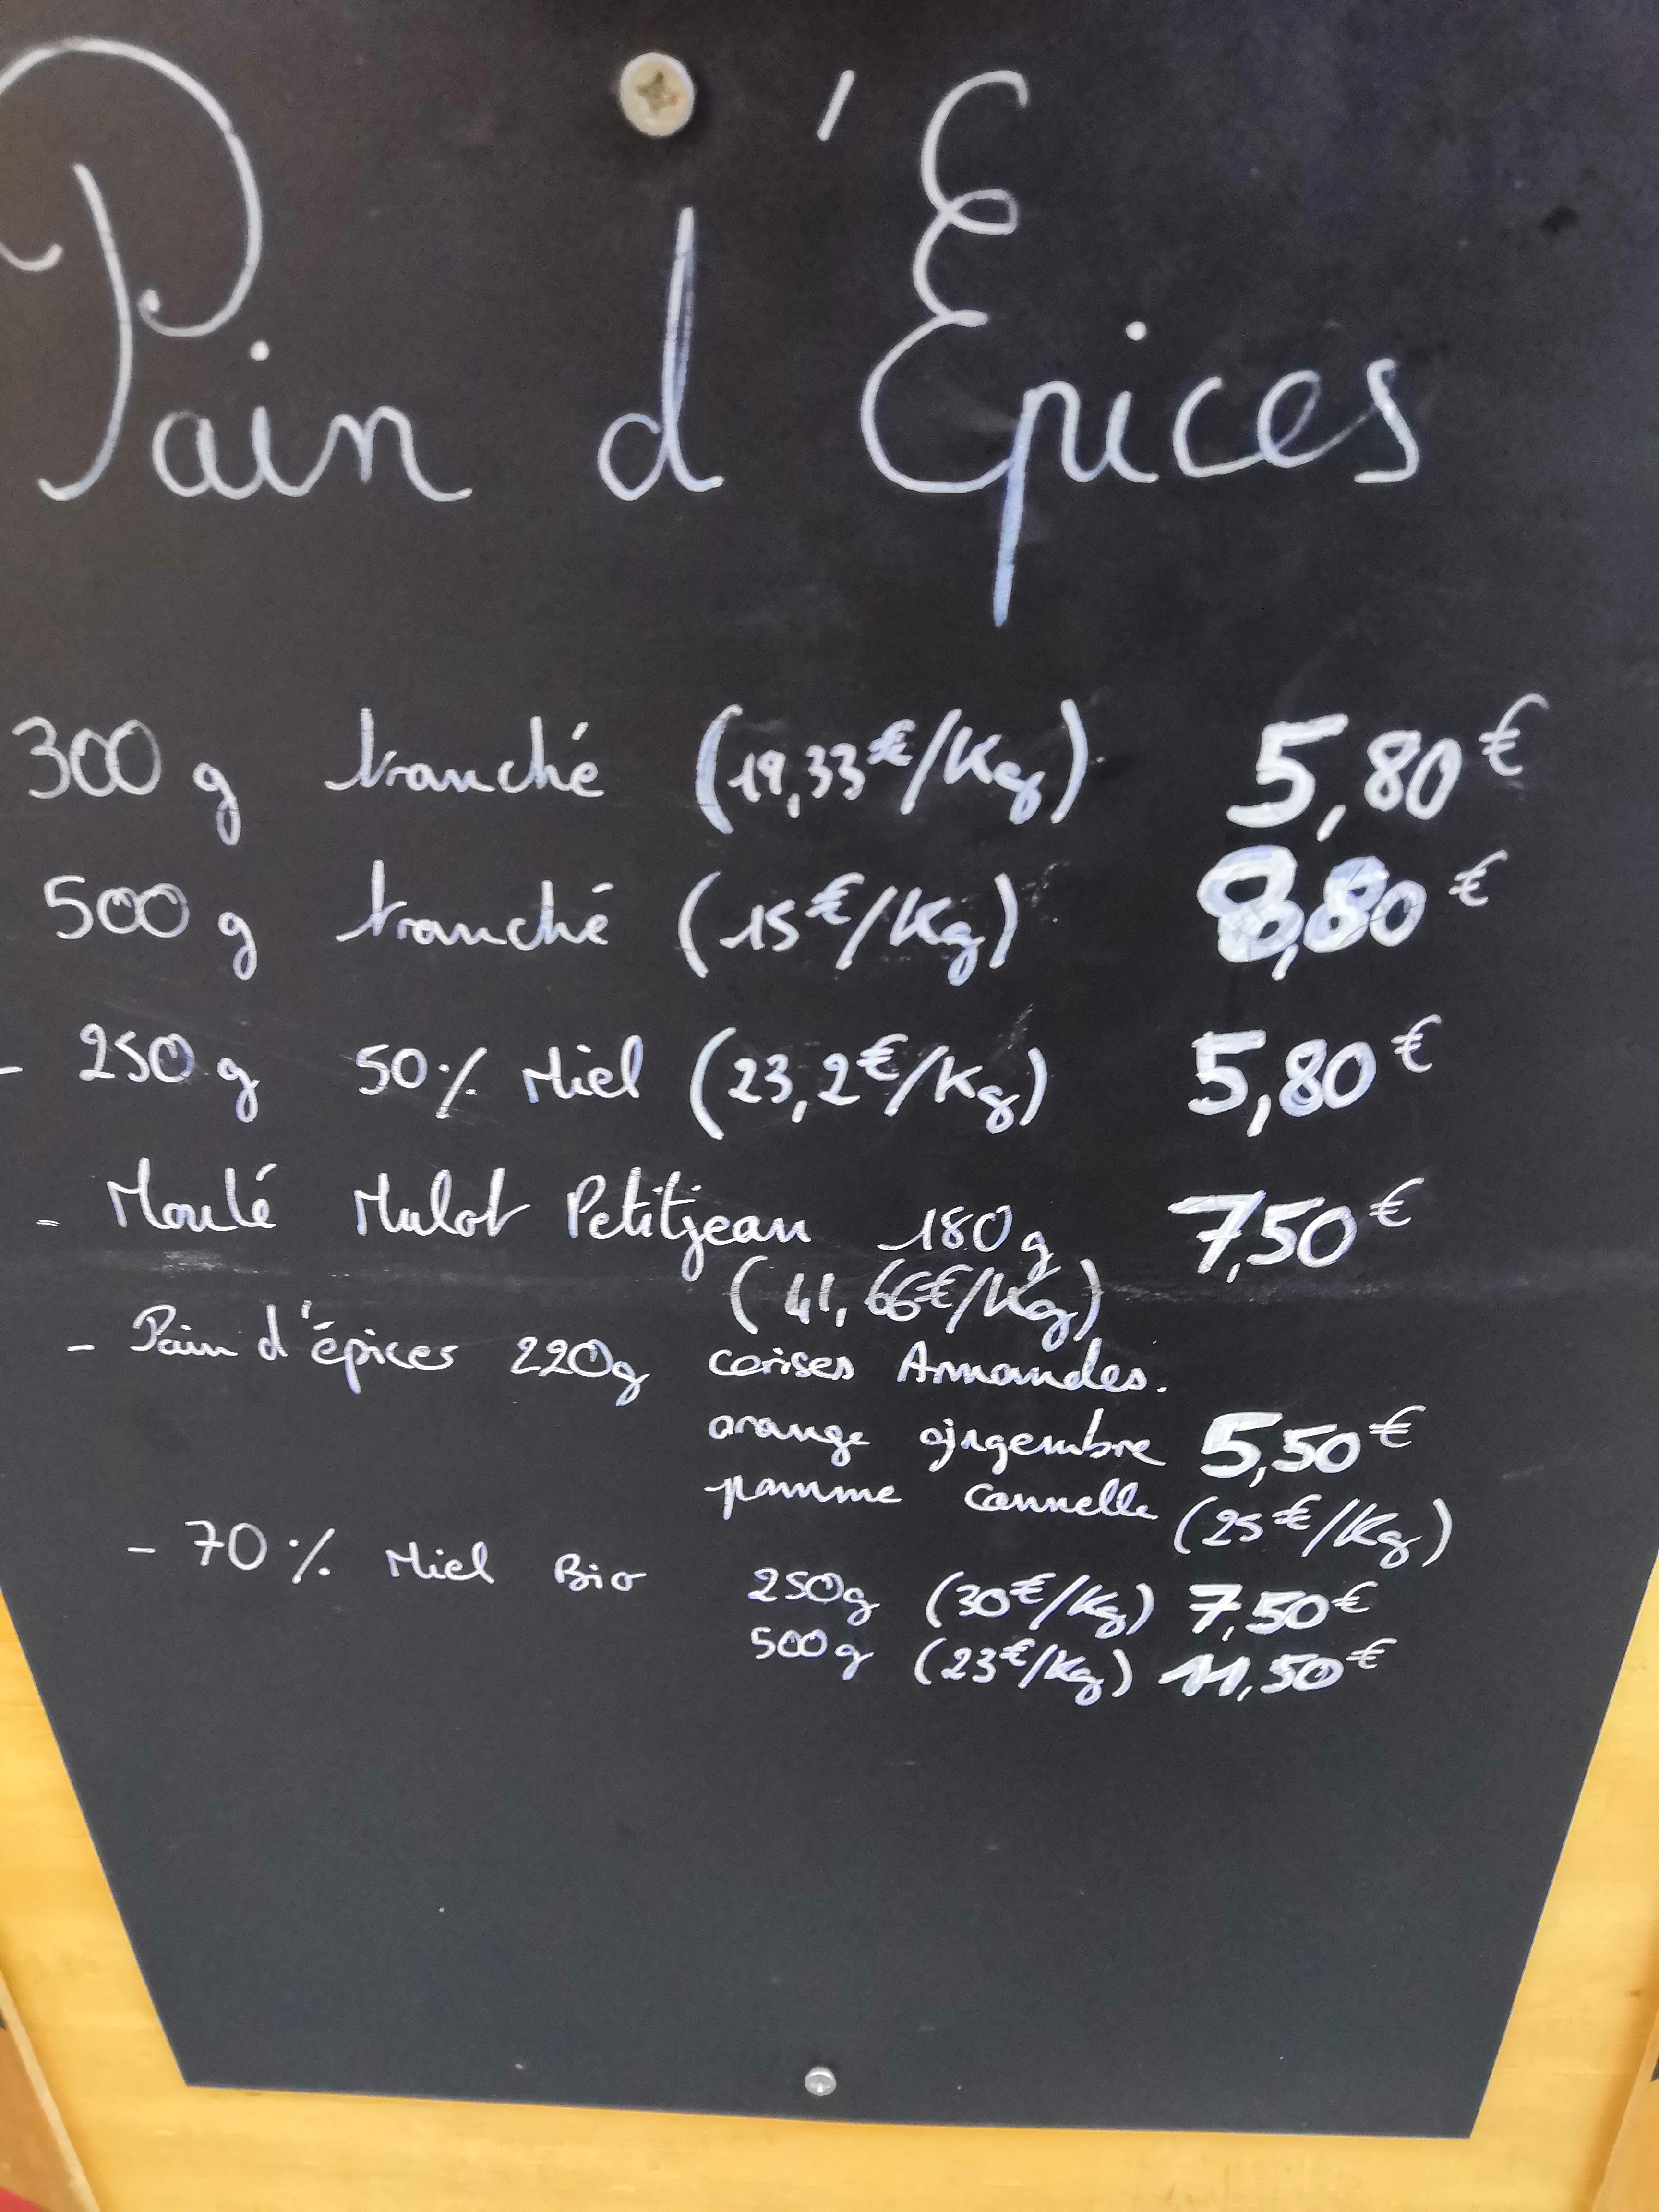 Pain d'Epices
300 g tranché (19,33€/Kg) 5,80€
500 g tranché (15€/Kg) 8,80€
- 250 g 50% Miel (23,2€/Kg) 5,80€
- Moulé Mulot Petitjean 180 g 7,50€
(41,66€/Kg)
- Pain d'épices 220g cerises Amandes.
orange gingembre 5,50€
pomme cannelle (25€/Kg)
- 70% Miel Bio 250g (30€/Kg) 7,50€
500g (23€/Kg) 11,50€